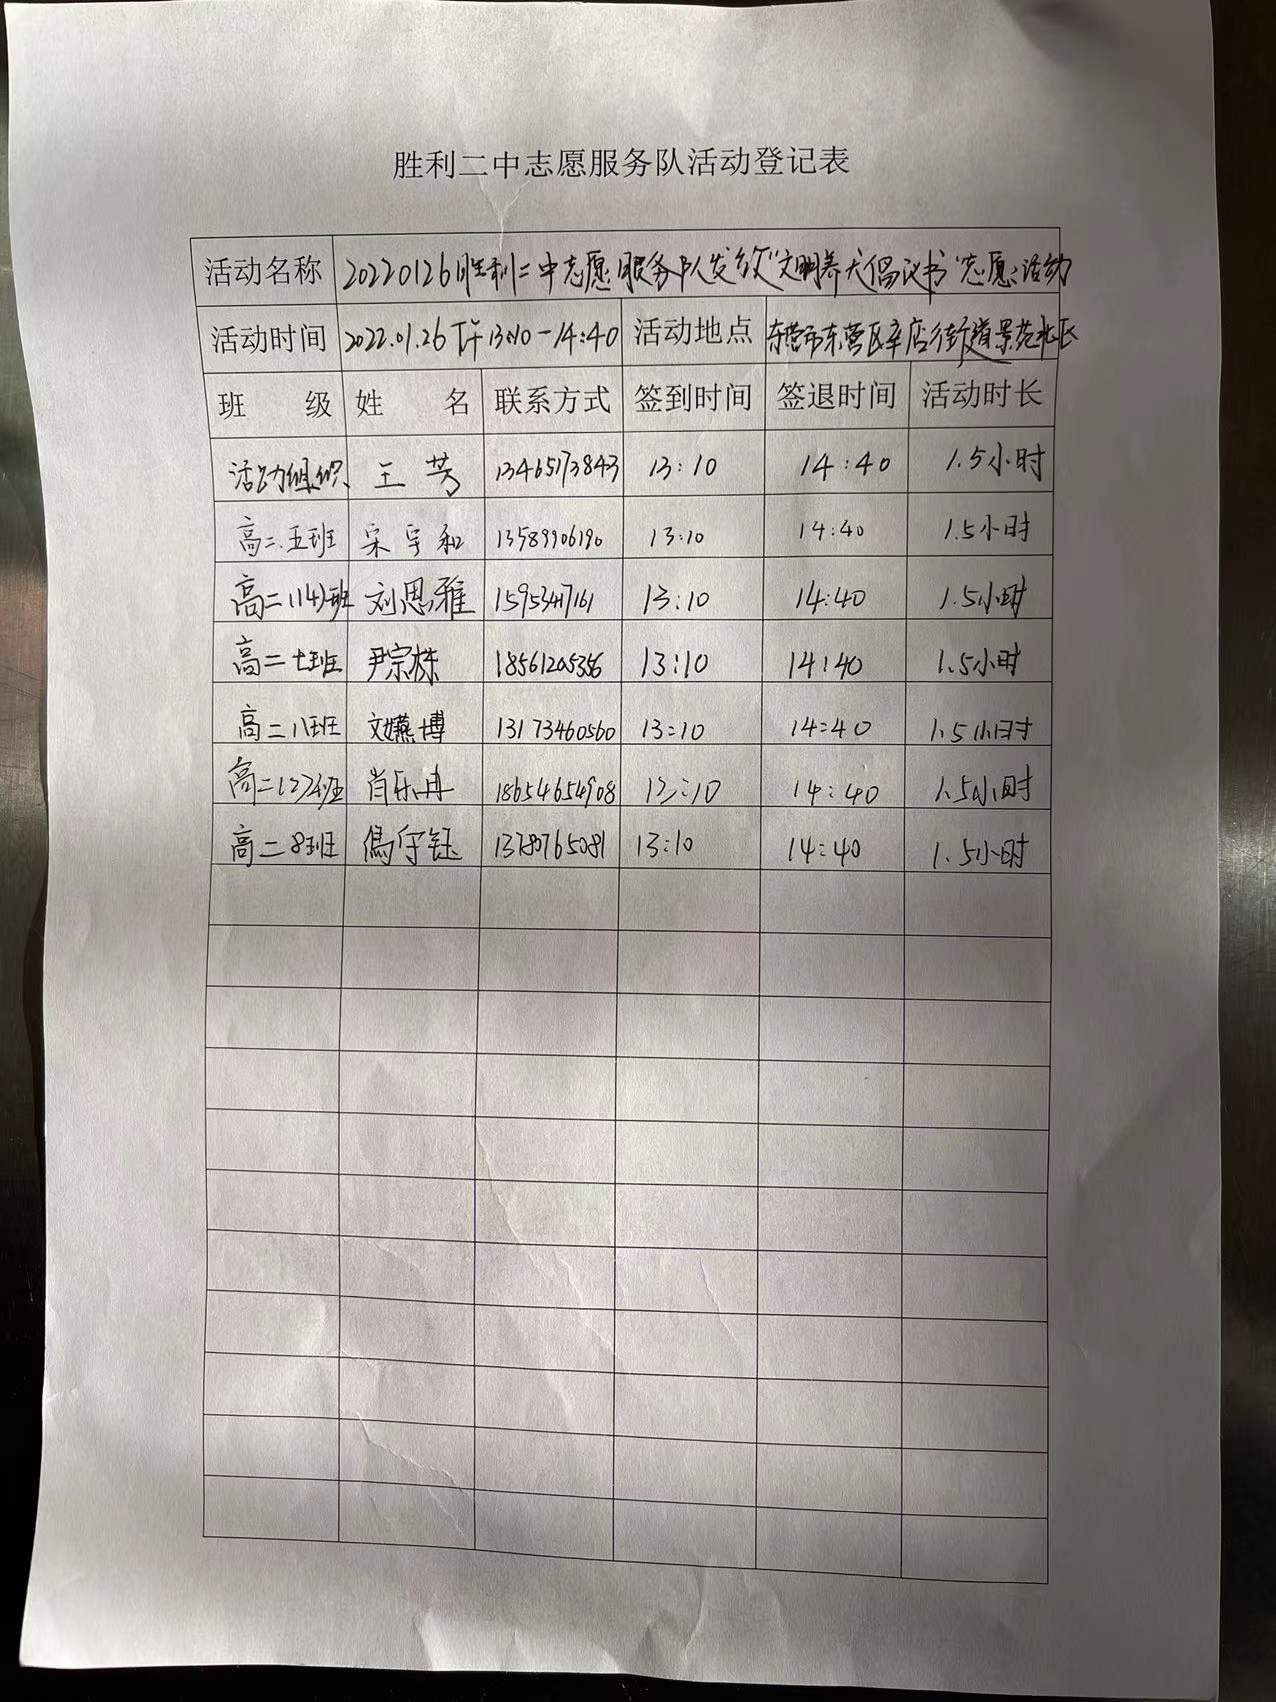 胜利二中志愿服务队活动登记表
活动名称 20220126胜利二中志愿服务队发放"文明养犬倡议书"志愿活动
活动时间 2022.01.26下午13:10-14:40 活动地点 东营市东营区辛店街道景苑北区
班 级 姓 名 联系方式 签到时间 签退时间 活动时长
活动组织 王芳 13465173843 13:10 14:40 1.5小时
高二.五班 宋宇和 13589906190 13:10 14:40 1.5小时
高二(14)班 刘思雅 15953417161 13:10 14:40 1.5小时
高二七班 尹宗栋 18561205356 13:10 14:40 1.5小时
高二八班 文嬿博 13173460560 13:10 14:40 1.5小时
高二(2)班 肖乐冉 18654654908 13:10 14:40 1.5小时
高二8班 守钰 13780765081 13:10 14:40 1.5小时